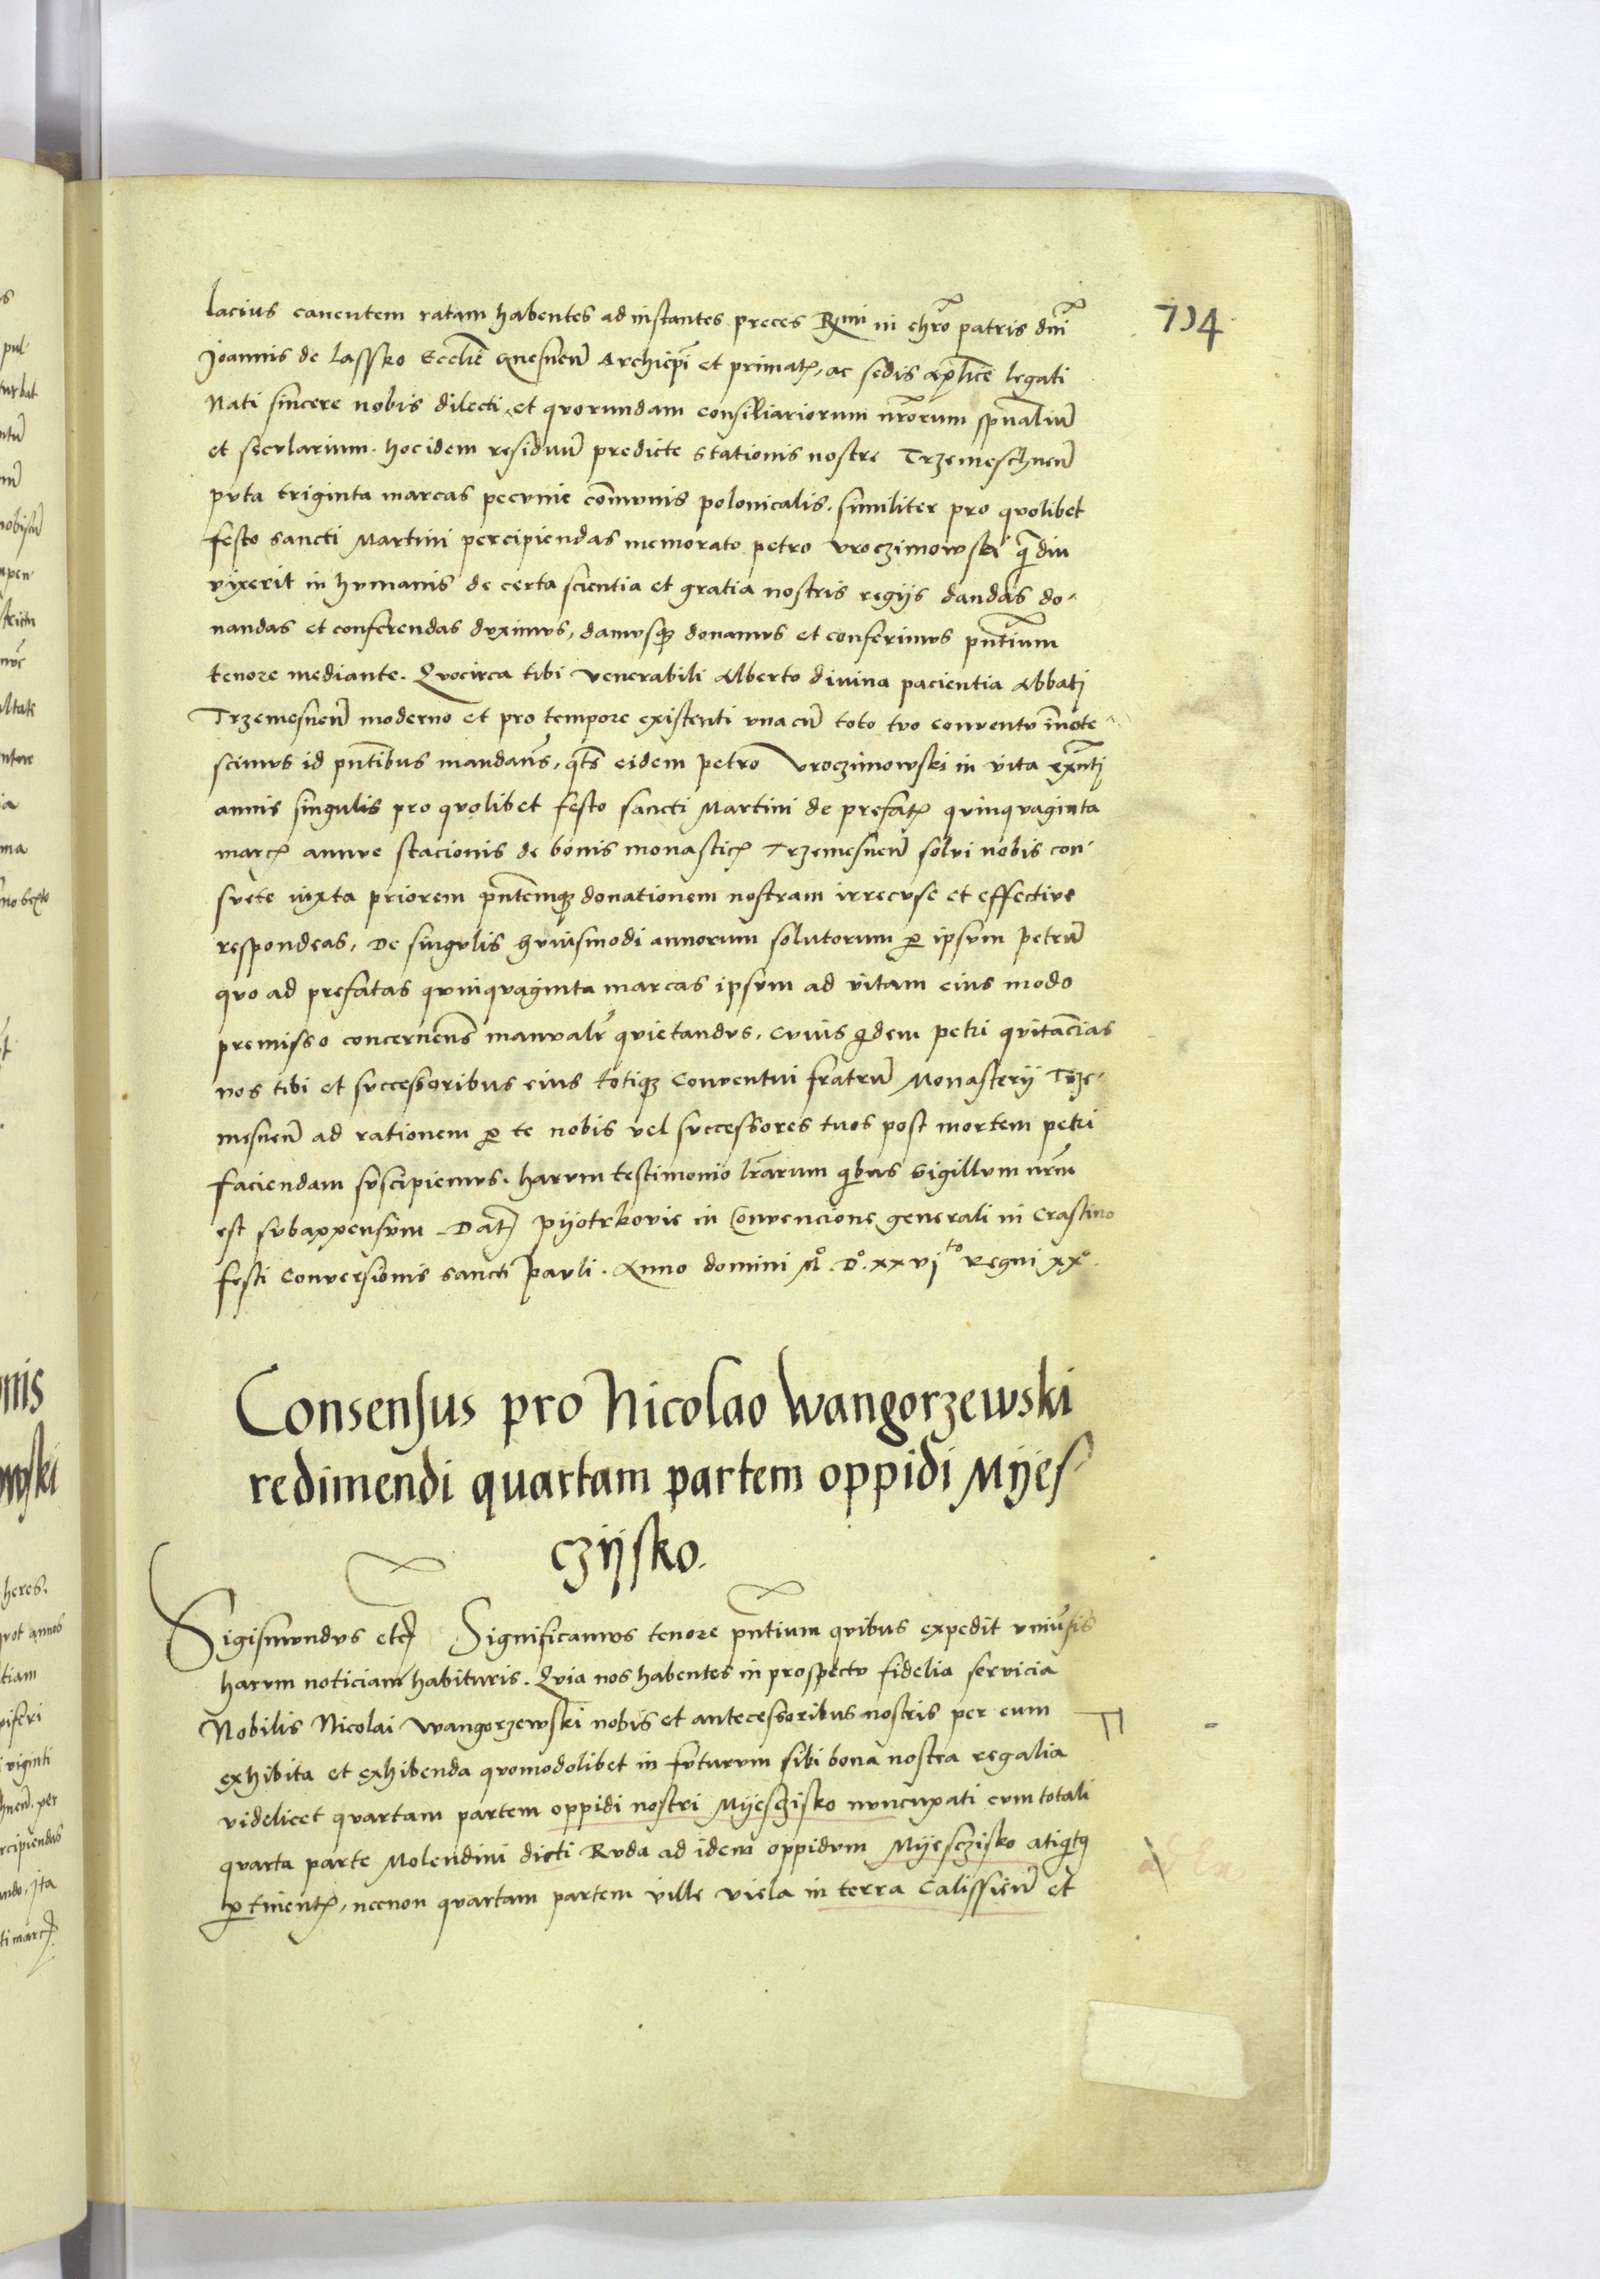 734
lacius canentem ratam habentes ad instantes preces R^mi in chro patris dni
Joannis de Lassko Ecclie Gnesnen Archiepi et primat, ac sedis aplice legati
Nati sincere nobis dilecti, et quorundam consiliariorum nrorum spualium
et secularium. hoc idem residuum predicte stationis nostre Trzemeschnen
puta triginta marcas pecunie comunis polonicalis. similiter pro quolibet
festo sancti Martini percipiendas memorato petro Vroczimowski q diu
vixerit in humanis de certa scientia et gratia nostris regijs dandas do-
nandas et conferendas duximus, damusq donamus et conferimus pntium
tenore mediante. Quocirca tibi venerabili Alberto divina paciencia Abbati
Trzemesnen moderno et pro tempore existenti vna cu toto tuo conventu inote-
scimus id pntibus mandans, qts eidem Petro Vroczimowski in vita exnti
annis singulis pro quolibet festo sancti Martini de prefat quinquaginta
marc annue stacionis de bonis monastic Trzemesnen solui nobis con-
suete iuxta priorem pntemq donationem nostram irrecuse et effective
respondeas, De singulis huiusmodi annorum solutorum p ipsum Petrum
quo ad prefatas quinquaginta marcas ipsum ad vitam eius modo
premisso concernens manualr quietandus. Cuius qdem Petri quitacias
nos tibi et successoribus eius totiq Conventui fratru Monasterij Trze-
mesnen ad rationem p te nobis vel successores tuos post mortem petri
faciendam suscipiemus. harum testimonio lrarum qbus sigillum nrm
est subappensum. Dat Pyotrkovie in Convencione generali in Crastino
festi Conversionis sancti Pauli. Anno domini M°. D°. xxvj^to Regni xx°.
Consensus pro Nicolao Wangorzewski
redimendi quartam partem oppidi Myes-
czysko.
Sigismundus etc Significamus tenore pntium quibus expedit vniusis
harum noticiam habituris. Quia nos habentes in prospectu fidelia servicia
Nobilis Nicolai Wangorzewski nobis et antecessoribus nostris per eum
exhibita et exhibenda quomodolibet in futurum sibi bona nostra regalia
videlicet quartam partem oppidi nostri Myesczisko nuncupati cum totali
quarta parte Molendini dicti Ruda ad idem oppidum Myesczisko atiqtq
ptinent, necnon quartam partem ville viela in terra Calissien et